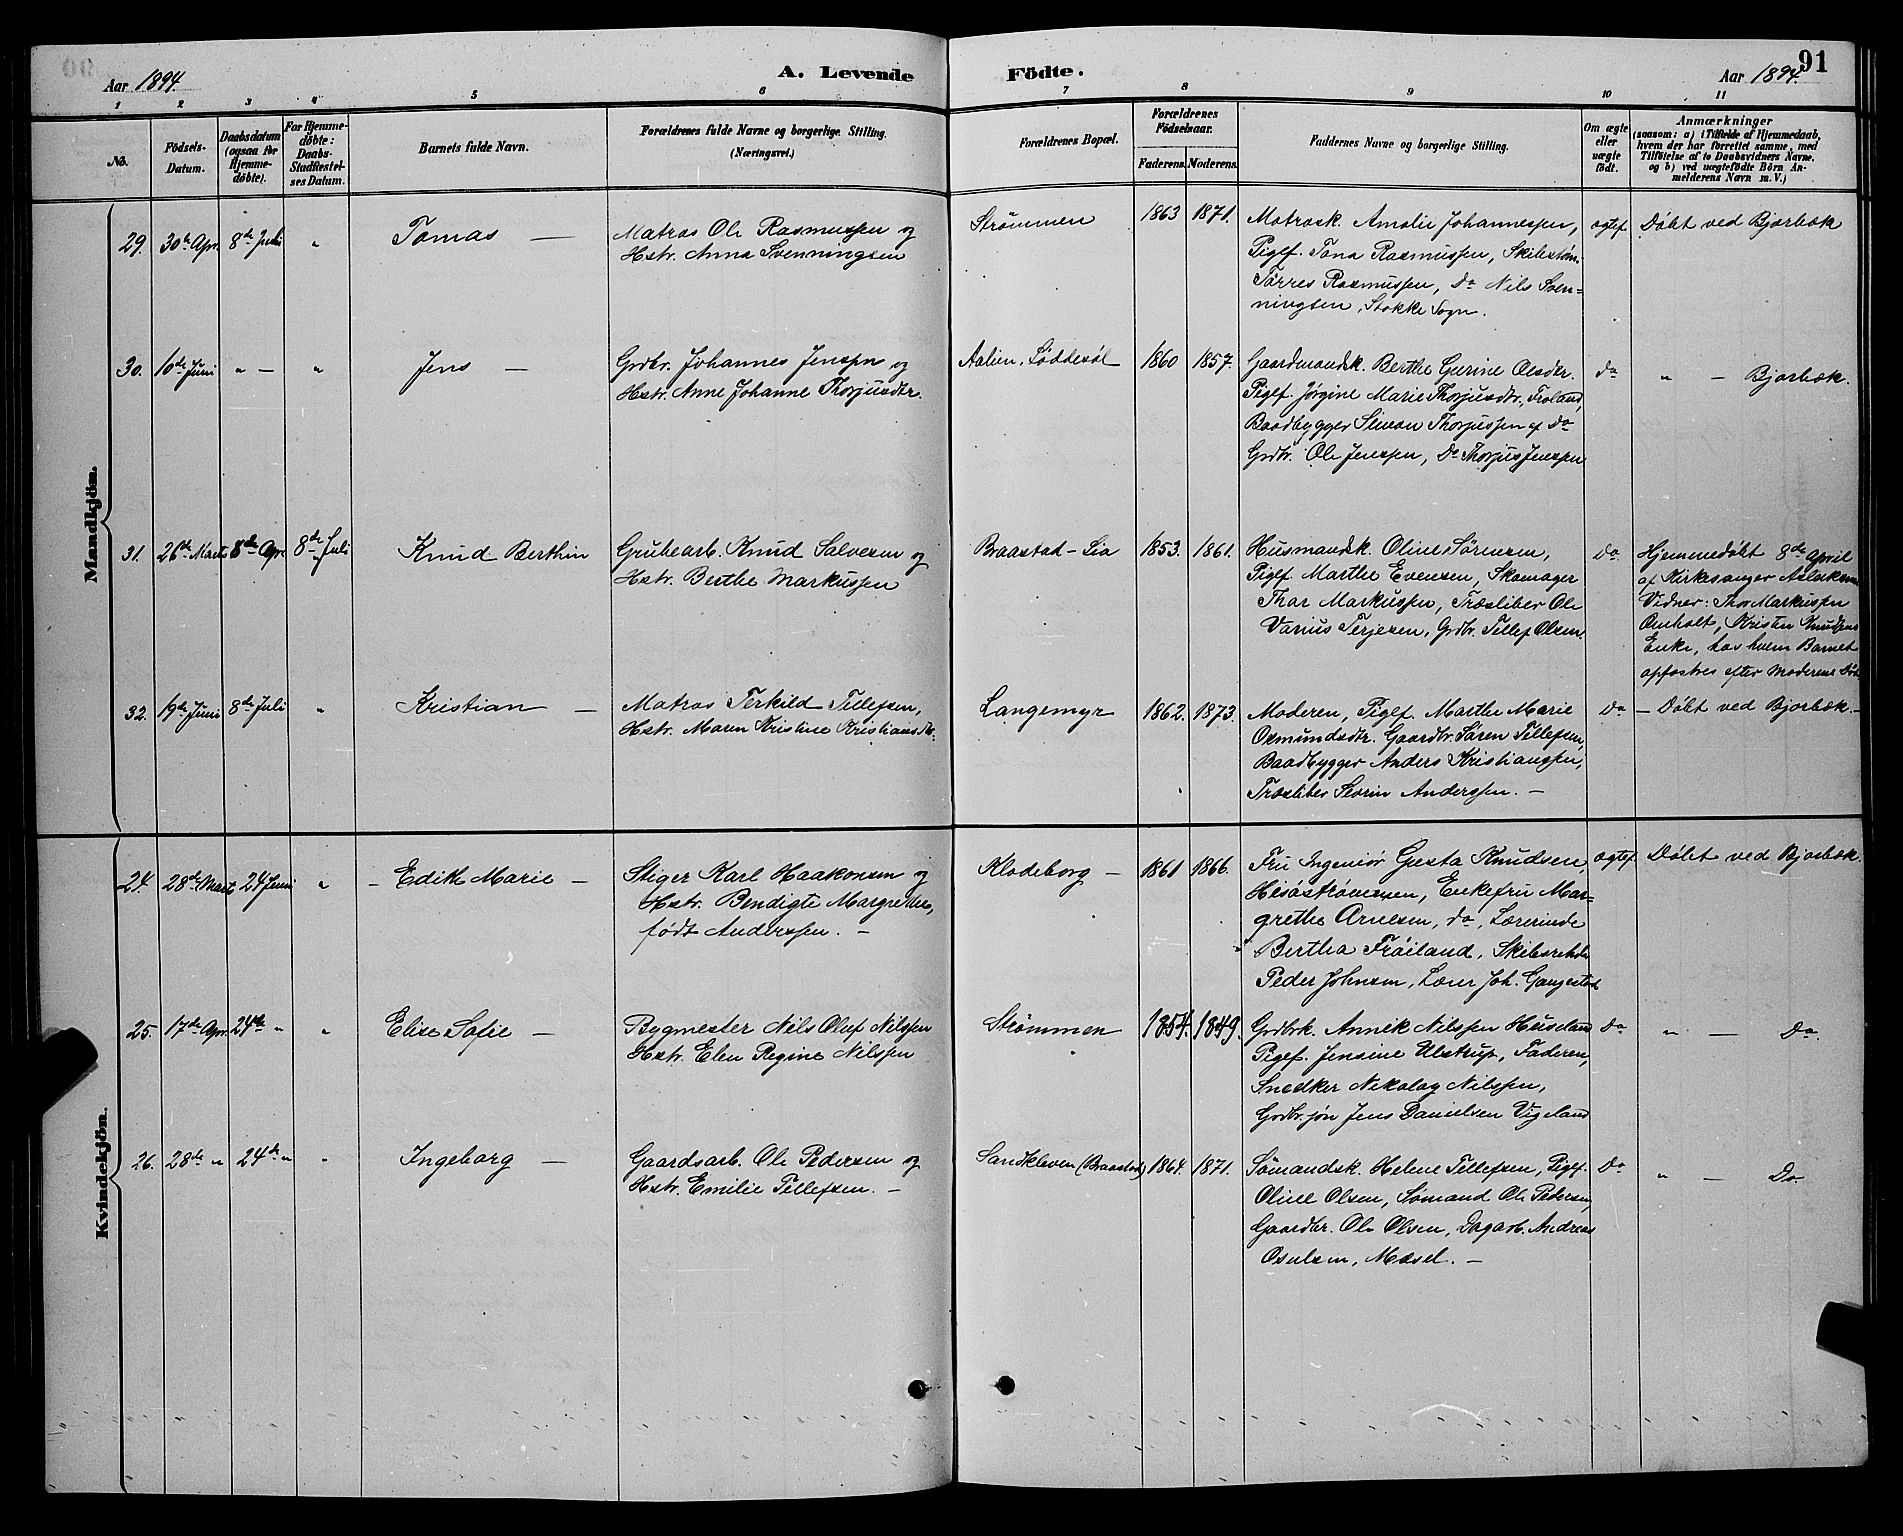 Aar 1894.
A. Levende
Födte.
Aar 1894.
91
1 2 3 4 5 6 7 8 9 10 11
No.
Födsels-Datum.
Daabsdatum (ogsaa for Hjemme-döbte).
For Hjemme-döbte: Daabs-Stadfæstel-ses Datum.
Barnets fulde Navn.
Forældrenes fulde Navne og borgerlige Stilling.
(Næringsvei.)
Forældrenes Bopæl.
Forældrenes Födselsaar.
Faderens. Moderens.
Faddernes Navne og borgerlige Stilling.
Om ægte eller uægte födt.
Anmærkninger
(saasom: a) i Tilfælde af Hjemmedaab,
hvem der har forrettet samme, med
Tilföielse af to Daabsvidners Navne,
og b) ved uægtefödte Börn An-
melderens Navn m. V.)
Mandkjön.
29. 30de Apr. 8de Juli " Tomas —
Matros Ole Rasmussen og
Hstr. Anna Svenningsen
Strømmen 1863 1871.
Matrosk. Amalie Johannessen,
Pigef. Tona Rasmussen,
Tørres Rasmussen, Do Nils Sven=
ningsen, Stokke Sogn.
ægtef. Döbt ved Bjorbæk
30. 10de Juni " — " Jens —
Grdbr. Johannes Jensen og
Hstr. Anne Johanne Thorjusdtr.
Aalien, Løddesøl 1860 1857.
Gaardmandsk. Berthe Gurine Olsdtr.
Pigef. Jørgine Marie Thorjusdtr., Froland,
Baadbygger Simon Thorjussen af Do
Grdbr. Ole Jenssen, Do Thorjus Jenssen
Do " — Bjorbæk.
31. 26de Marts 8de Apr. 8de Juli Knud Berthin
Grubearb. Knud Salvesen og
Hstr. Berthe Markussen
Braastad-Lia 1853. 1861.
Husmandsk. Oline Sørensen,
Pigef. Marthe Evensen, Skomager
Thor Markussen, Træsliber Ole
Varius Terjesen, Grdbr. Tellef Olsen.
Do Hjemmedøbt 8de April
af Kirkesanger Aslaksen
Vidner: Thor Markussen
Omholt, Kristen Knudsens
Enke, hos hvem Barnet
opfostres efter Moderens Død
32. 19de Juni 8de Juli " Kristian —
Matros Terkild Tellefsen,
Hstr. Maren Kristine Kristiansdtr.
Langemyr 1862. 1873.
Moderen, Pigef. Marthe Marie
Osmundsdtr. Gaardbr. Søren Tellefsen,
Baadbygger Anders Kristianssen,
Træsliber Anderssen. —
Do — Döbt ved Bjorbæk. —
Kvindekjön.
24. 28de Mart 24 Juni " — Edith Marie —
Stiger Karl Haakonsen og
Hstr. Bendigte Margrethe,
født Anderssen. —
Klodeborg — 1861 1866.
Fru Ingeniør Gusta Knudsen,
Enkefru Mar=
grethe Arnesen, do, Lærerinde
Bertha Frøiland,
Peder Johnsen, Lærer Joh. Gangestad
Ægtef. Döbt ved Bjorbæk.
25. 17de Apr. 24de " " Elise Sofie —
Bygmester Nils Oluf Nilssen
Hstr. Elen Regine Nilssen
Strømmen 1854. 1849.
Grdbrk. Annik Nilssen Huseland
Pigef. Jensine Ulstrup, Faderen,
Snedker Nikolay Nilssen,
Grdbr.søn Jens Danielsen Vigeland
Do " — Do.
26. 28de " 24de " " Ingeborg —
Gaardsarb. Ole Pedersen og
Hstr. Emilie Tellefsen. —
Sandkleven (Braastad) 1864. 1871.
Sømandsk. Helene Tellefsen, Pigef.
Oline Olsen, Sømand Ole Pedersen,
Gaardbr. Ole Olsen, Dagarb. Andreas
Osulsen, Mæsel. —
Do " — Do